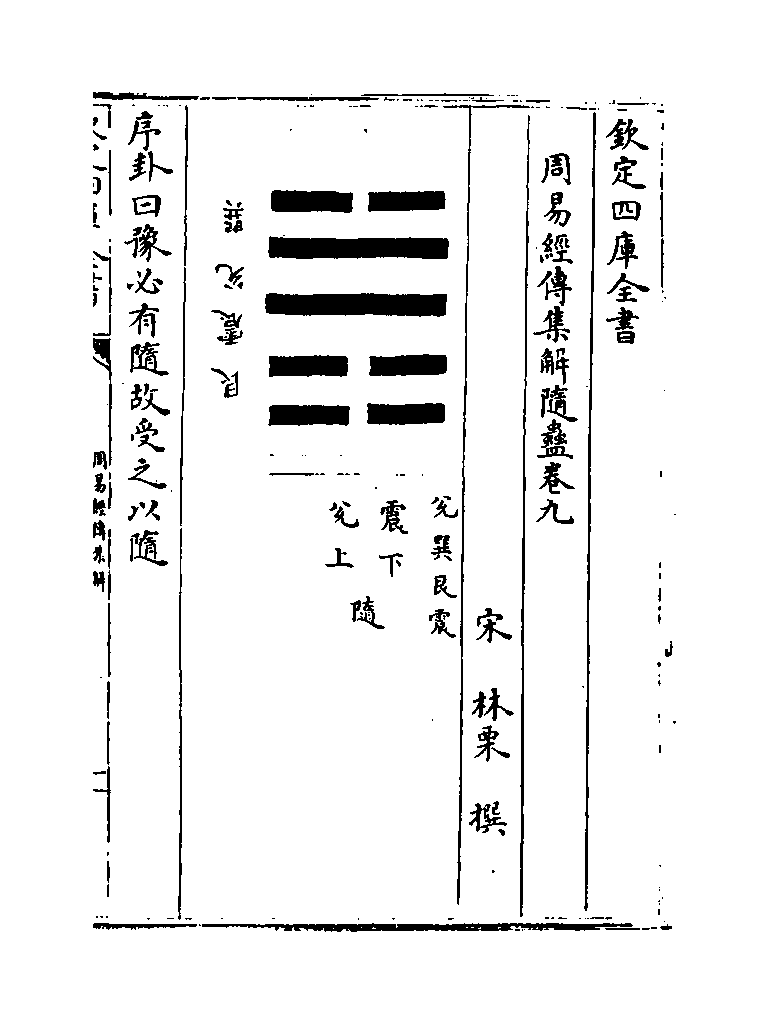 欽定四庫全書
周易經傳集解隨蠱卷九
宋 林栗 撰
兊巽艮震
震下
兊上
隨
巽兊震艮
序卦曰豫必有隨故受之以隨
周易經傳集解
一